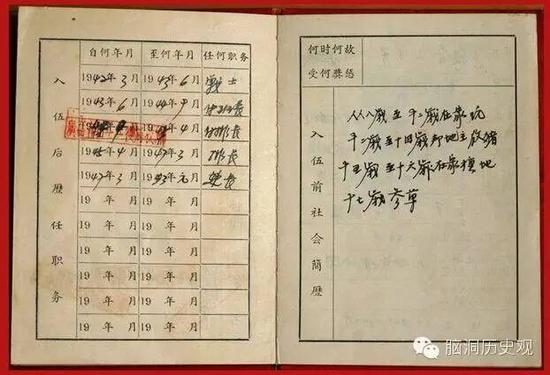 自何年月 至何年月 任何职务
入伍后歷任职务
1942年3月 1943年6月 战士
1943年6月 1944年9月
年 月 19 年4月
1945年4月 1947年3月 排长
1947年3月 19 年元月 连长
19 年 月 19 年 月
19 年 月 19 年 月
19 年 月 19 年 月
19 年 月 19 年 月
19 年 月 19 年 月
何时何故
受何奖惩
入伍前社会简歷
从八歲至十二歲在家玩
十二歲至十四歲 地主放猪
十五歲至十六歲在家種地
十七歲参军
脑洞历史观